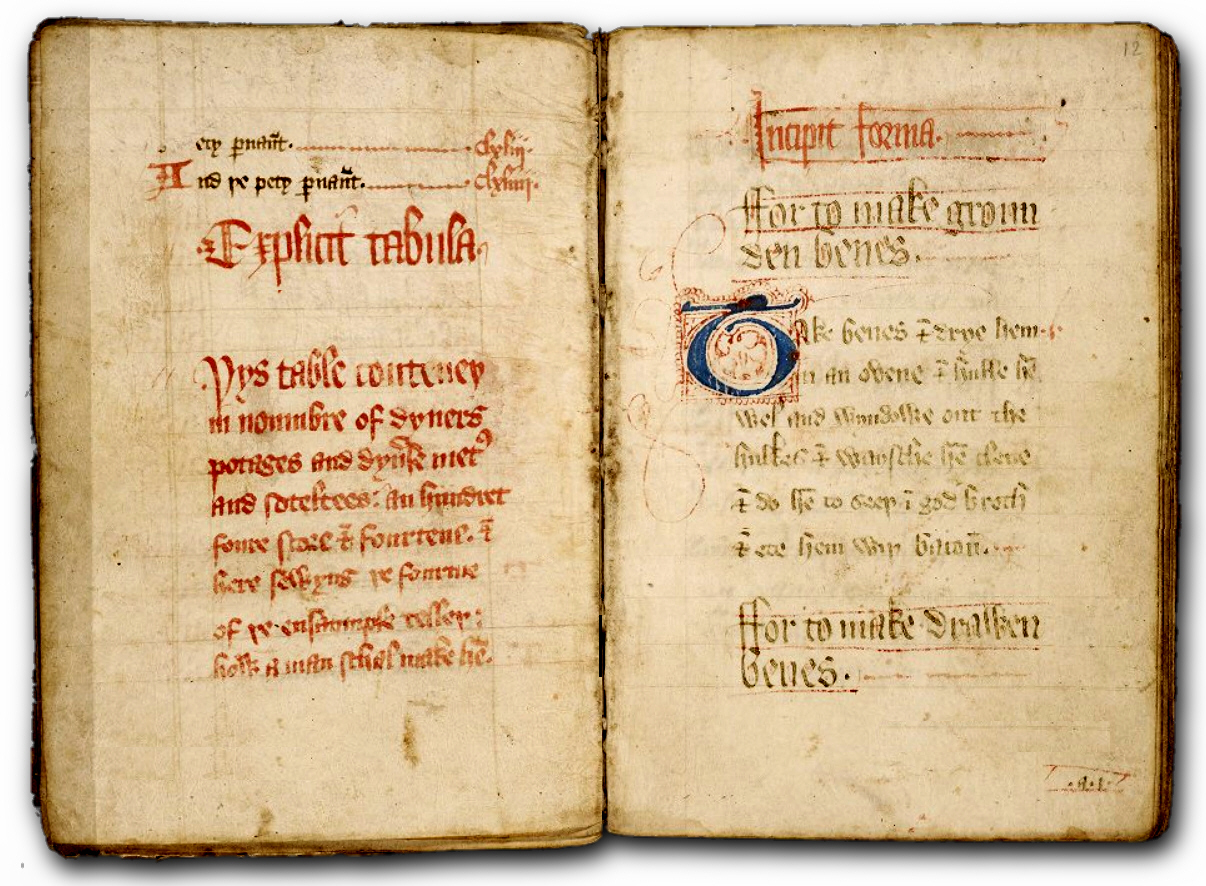 ety pnaūt. cxliij.
And þe pety pnaūt. cxliiij.
Explicit tabula.
Þys table conteneþ
in noumbre of dyuers
potages and dyuse met9
and soteltees: an hundret
foure score & fourtene. &
here sewyng þe fourme
of þe ensaumple telleþ:
how a man schal make hē.
12
Incipit forma.
ffor to make groun
den benes.
Take benes & drye hem
in an ovene & hulle hē
wel and wyndowe out the
hulkes & waysche hē clene
& do hē to seeþ ī god broth
& ete hem wiþ bacoū.
ffor to make drawen
benes.
.a.i.